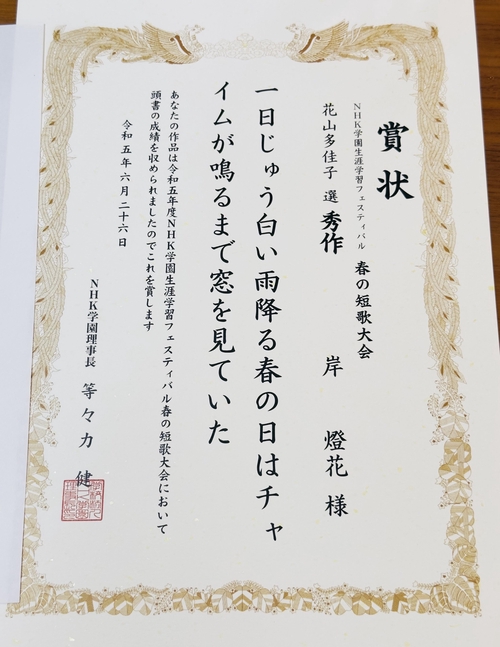 賞状
NHK学園生涯学習フェスティバル 春の短歌大会
花山多佳子 選 秀作 岸 燈花 様
一日じゅう白い雨降る春の日はチャ
イムが鳴るまで窓を見ていた
あなたの作品は令和五年度NHK学園生涯学習フェスティバル春の短歌大会において
頭書の成績を収められましたのでこれを賞します
令和五年六月二十六日
NHK学園理事長 等々力 健